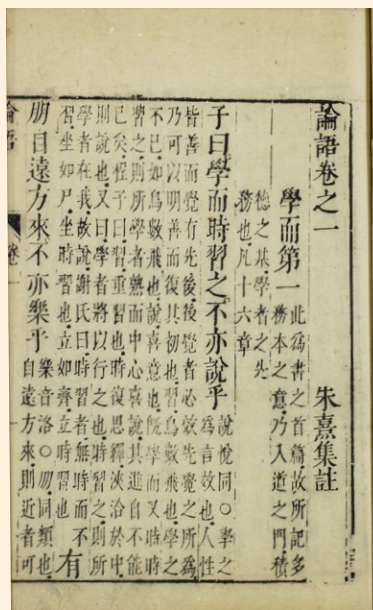 論語卷之一 朱熹集註
學而第一 此爲書之首篇故所記多
務本之意乃入道之門積
德之基學者之先
務也凡十六章
子曰學而時習之不亦說乎 說悅同○學之
爲言效也人性
皆善而覺有先後後覺者必效先覺之所爲
乃可以明善而復其初也習鳥數飛也學之
不已如鳥數飛也說喜意也既學而又時時
習之則所學者熟而中心喜說其進自不能
已矣程子曰習重習也時復思釋浹洽於中
則說也又曰學者將以行之也時習之則所
學者在我故說謝氏曰時習者無時而不
習坐如尸坐時習也立如齊立時習也 有
朋自遠方來不亦樂乎 樂音洛○朋同類也
自遠方來則近者可
論語 卷一